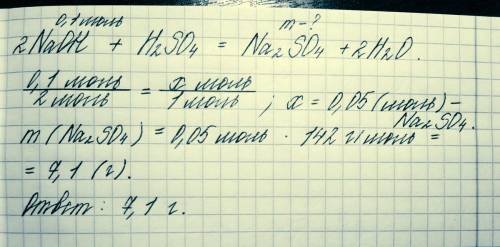 0,1 моль m-?
2NaOH + H₂SO₄ = Na₂SO₄ + 2H₂O.
0,1 моль / 2 моль = x моль / 1 моль ; x = 0,05 (моль) –
Na₂SO₄.
m (Na₂SO₄) = 0,05 моль · 142 г/моль =
= 7,1 (г).
Ответ: 7,1 г.